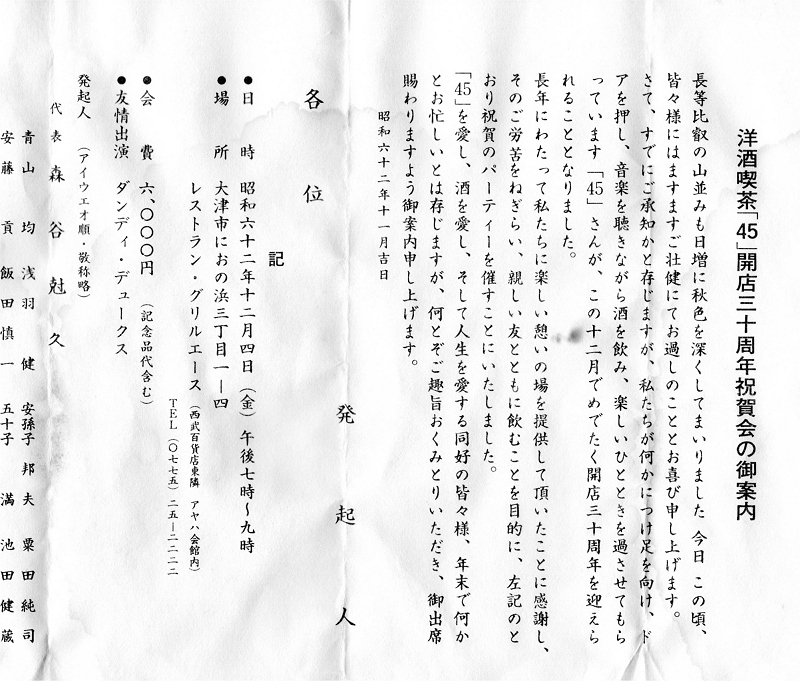 洋酒喫茶「45」開店三十周年祝賀会の御案内
長等比叡の山並みも日増に秋色を深くしてまいりました 今日 この頃、
皆々様にはますますご壮健にてお過しのこととお喜び申し上げます。
さて、すでにご承知かと存じますが、私たちが何かにつけ足を向け、ド
アを押し、音楽を聴きながら酒を飲み、楽しいひとときを過させてもら
っています「45」さんが、この十二月でめでたく開店三十周年を迎えら
れることとなりました。
長年にわたって私たちに楽しい憩いの場を提供して頂いたことに感謝し、
そのご労苦をねぎらい、親しい友とともに飲むことを目的に、左記のと
おり祝賀のパーティーを催すことにいたしました。
「45」を愛し、酒を愛し、そして人生を愛する同好の皆々様、年末で何か
とお忙しいとは存じますが、何とぞご趣旨おくみとりいただき、御出席
賜わりますよう御案内申し上げます。
昭和六十二年十一月吉日
発起人
各位
記
●日時 昭和六十二年十二月四日（金）午後七時～九時
●場所 大津市におの浜三丁目一―四
レストラン・グリルエース（西武百貨店東隣 アヤハ会館内）
TEL（〇七七五）二五―二二二二
●会費 六、〇〇〇円（記念品代含む）
●友情出演 ダンディ・デュークス
発起人（アイウエオ順・敬称略）
代表 森谷尅久
青山 均 浅羽 健 安孫子 邦夫 粟田純司
安藤 貢 飯田慎一 五十子 満 池田健蔵